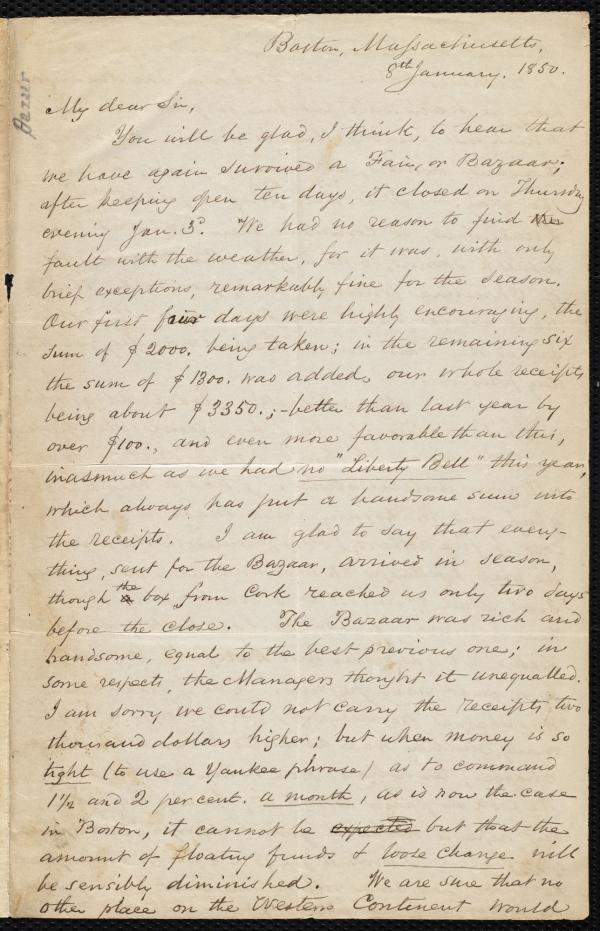 Boston, Massachusetts,
8th January, 1850.
My dear Sir,
You will be glad, I think, to hear that
we have again survived a Fair, or Bazaar;
after keeping open ten days, it closed on Thursday
evening Jan. 3d. We had no reason to find
fault with the weather, for it was, with only
brief exceptions, remarkably fine for the season.
Our first four days were highly encouraging, the
sum of $2000. being taken; in the remaining six
the sum of $1300. was added, our whole receipts
being about $3350.;- better than last year by
over $100., and even more favorable than this,
inasmuch as we had no "Liberty Bell" this year,
which always has put a handsome sum into
the receipts. I am glad to say that every-
thing, sent for the Bazaar, arrived in season,
though the box from Cork reached us only two days
before the close. The Bazaar was rich and
handsome, equal to the best previous one; in
some respects, the Managers thought it unequalled.
I am sorry we could not carry the receipts two
thousand dollars higher; but when money is so
tight (to use a Yankee phrase) as to command
1½ and 2 per cent. a month, as is now the case
in Boston, it cannot be expected but that the
amount of floating funds & loose change will
be sensibly diminished. We are sure that no
other place on the Western Continent would